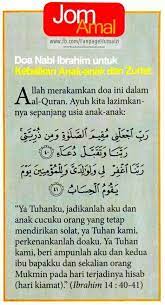 Jom
Amal
www.fb.com/fanpageilumuizi
Doa Nabi Ibrahim untuk
Kebaikan Anak-anak dan Zuriat
Allah merakamkan doa ini dalam
al-Quran. Ayuh kita lazimkan-
nya sepanjang usia anak-anak:
رَبِّ اجْعَلْنِي مُقِيمَ الصَّلَوٰةِ وَمِن ذُرِّيَّتِي
رَبَّنَا وَتَقَبَّلْ دُعَاءِ ٤٠
رَبَّنَا اغْفِرْ لِي وَلِوَالِدَيَّ وَلِلْمُؤْمِنِينَ
يَوْمَ يَقُومُ الْحِسَابُ ٤١
"Ya Tuhanku, jadikanlah aku dan
anak cucuku orang yang tetap
mendirikan solat, ya Tuhan kami,
perkenankanlah doaku. Ya Tuhan
kami, beri ampunlah aku dan kedua
ibu bapakku dan sekalian orang
Mukmin pada hari terjadinya hisab
(hari kiamat)." (Ibrahim 14 : 40-41)